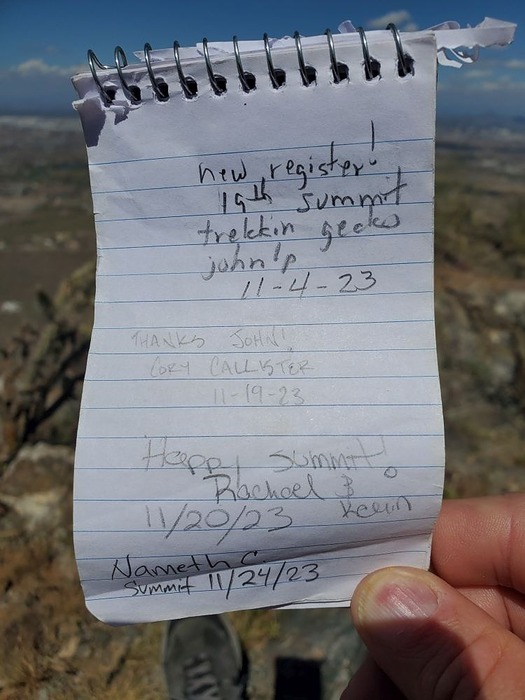 new register!
19th summit
trekkin gecko
john p
11-4-23
THANKS JOHN!
CORY CALLISTER
11-19-23
Happy Summit!
Rachael &
Kevin
11/20/23
Nameth C
Summit 11/24/23